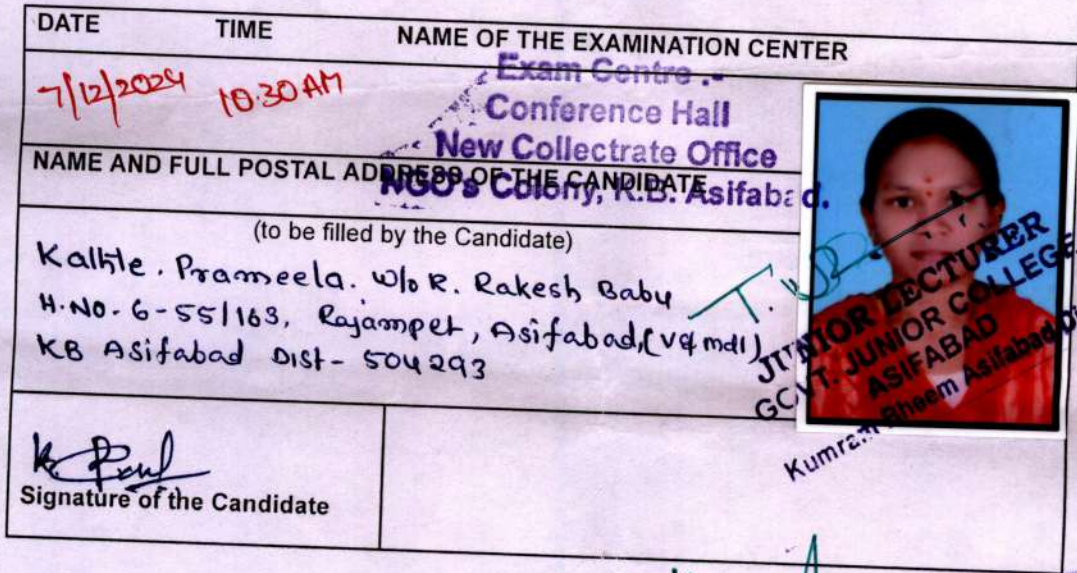 DATE TIME NAME OF THE EXAMINATION CENTER
7/12/2024 10.30 AM
Exam Centre :-
Conference Hall
New Collectrate Office
NGO's Colony, K.B. Asifabad.
NAME AND FULL POSTAL ADDRESS OF THE CANDIDATE
(to be filled by the Candidate)
Prameela. W/o R. Rakesh Babu
H.NO. 6-55/163, Rajampet, Asifabad, (V& mdl)
KB Asifabad Dist - 504293
JUNIOR LECTURER
GOVT. JUNIOR COLLEGE
ASIFABAD
Kumram Bheem Asifabad
Signature of the Candidate